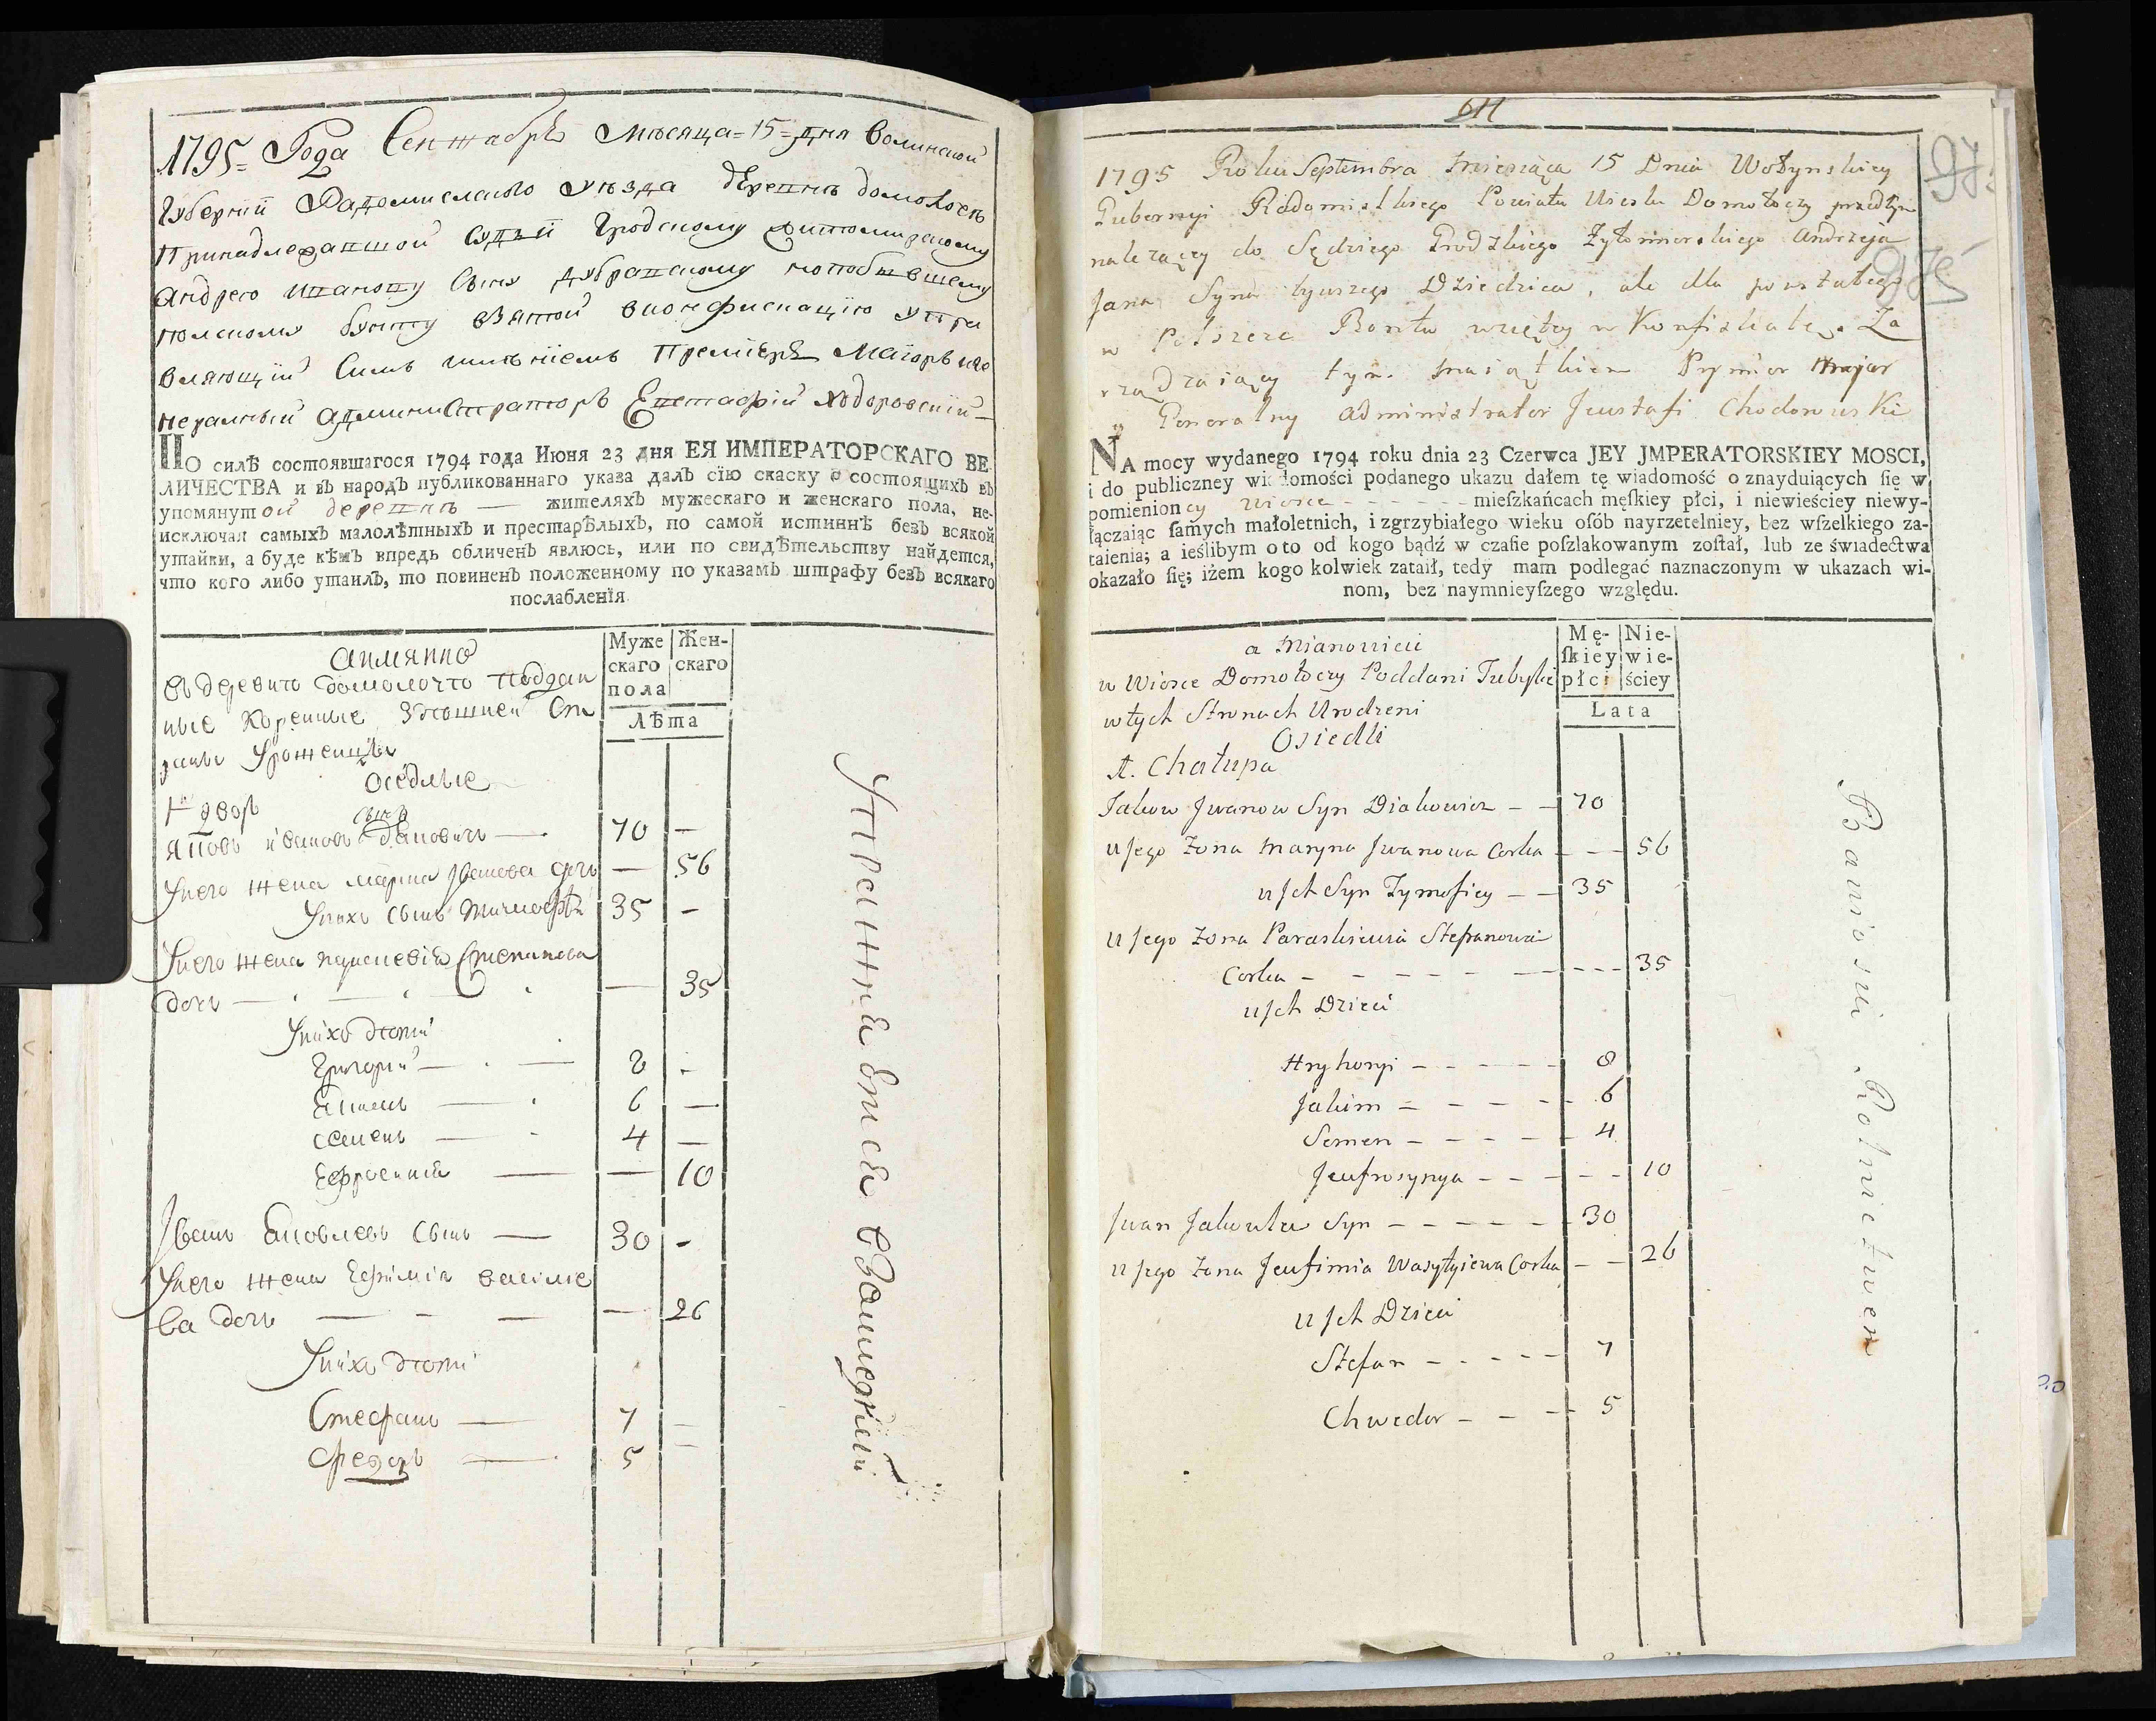 1795 = Года Сентабръ Месяца = 15 = дня Волинской
Губернїи Радомислского уезда деревнѣ домолочь
Принадлежавшой Судьи Гродскому житомирскому
Андрею Иванову Сыну дубравскому попобывшему
полскому бунту взятой вконфискацїю упра
вляющїй Симъ имѣнїемъ Премїеръ Маїоръ иге
неральный администраторъ Евстафїй Ходоровскїй
ПО силѣ состоявшагося 1794 года Июня 23 дня ЕЯ ИМПЕРАТОРСКАГО ВЕ-
ЛИЧЕСТВА и въ народъ публикованнаго указа далъ сїю скаску о состоящихъ въ
упомянутой деревнѣ — жителяхъ мужескаго и женскаго пола, не-
исключая самыхъ малолѣтныхъ и престарѣлыхъ, по самой истиннѣ безъ всякой
утайки, а буде кѣмъ впредь обличенъ явлюсь, или по свидѣтельству найдется,
что кого либо утаилъ, то повиненъ положенному по указамъ штрафу безъ всякаго
послабленїя.
Муже скаго пола Женскаго
Лѣта
аимянно
въ деревнѣ домолочѣ поддан
ные Коренные Здѣшней Сто
роны Уроженцы
Оседлые
1 двор
сынъ
Яковъ ивановъ Дяковичъ — 70 —
Унего жена марина Иванова дочь — 56
Унихъ сынъ тимофѣй 35 -
Унего жена параскевїя Степанова
дочь — — — 35
Унихъ дѣти
Григорий — — 8 -
Якимъ — 6 —
Семенъ — 4 —
Ефросиния — — 10
Иванъ Яковлевъ сынъ — 30 -
Унего жена Ефимїя василїе
ва дочь — - — — 26
Унихъ дѣти
Стефанъ — 7 —
Федоръ — 5 —
611
97.
976
1795 Roku Septembra miesiąca 15 Dnia Wołynskiey
Gubernyi Radomislskiego Powiatu Wioska Domołoczy przedtym
należący do Sędziego Grodzkiego Żytomirskiego Andrzeja
Jana Syna bywszego Dziedzica, ale dla powstałego
w Polszcze Bontu wziętey w Konfiskatę. Za
rządzaiący tym maiątkiem Prymier Major
y Generalny Administrator Jeustafi Chodorowski
NA mocy wydanego 1794 roku dnia 23 Czerwca JEY JMPERATORSKIEY MOSCI,
i do publiczney wiadomości podanego ukazu dałem tę wiadomość o znayduiących ſię w
pomienioney Wiosce - - - - - mieſzkańcach męſkiey płci, i niewieściey niewy-
łączaiąc ſamych małoletnich, i zgrzybiałego wieku oſób nayrzetelniey, bez wſzelkiego za-
taienia; a ieślibym o to od kogo bądź w czaſie poſzlakowanym zoſtał, lub ze świadectwa
okazało ſię; iżem kogo kolwiek zataił, tedy mam podlegać naznaczonym w ukazach wi-
nom, bez naymnieyſzego względu.
Mę-ſkiey płci Nie-wie-ściey
Lata
a Mianowicie
w Wiosce Domołoczy Poddani Tubylcy
w tych Stronach Urodzeni
Osiedli
1. Chałupa
Jakow Jwanow Syn Diakowicz - - 70
u Jego Żona Maryna Jwanowa Corka - - - 56
u Jch Syn Tymofiey - - 35
u Jego Żona Paraskiewia Stepanowa
Corka - - - - - - - - 35
u Jch Dzieci
Hryhoryi - - - - - 8
Jakim - - - - - 6
Semen - - - - - 4
Jeufrosynya - - - - - 10
Jwan Jakowlew Syn - - - - - 30
u Jego Żona Jeufimia Wasylyiewa Corka - - 26
u Jch Dzieci
Stefan - - - - - 7
Chwedor - - - 5